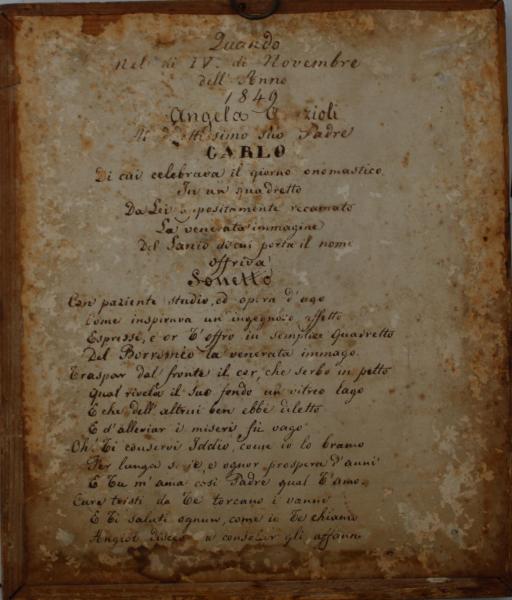 Quando
nel dì IV. di Novembre
dell' Anno
1849
Angela
Al suo Padre
CARLO
Di cui celebrava il giorno onomastico
In un quadretto
Da Lei ricamato
La venerata immagine
Del Santo di cui porta il nome
offriva
Sonetto
Con paziente studio, ed opera d'ago
Come inspirava un ingegnoso affetto
Espressi, e or T'offro in semplice quadretto
Del Borromio la venerata immago.
Traspar dal fronte il cor, che serbò in petto
Qual rivela il suo fondo un vitreo lago
E che dell' altrui ben ebbe diletto
E d'alleviar i miseri fù vago
Oh! Ti conservi Iddio, come io lo bramo
Per lunga e ognor prospera d'anni
E Tu m'ama così Padre qual T'amo.
Cure tristi da Te torcano i vanni
E Ti saluti ognun, come io Te chiamo
Angiol a consolar gli affanni